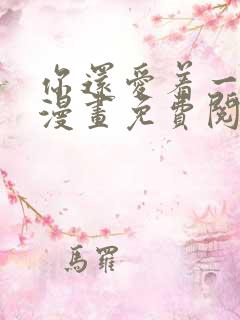 你還愛着一
漫畫免費閱
馬羅